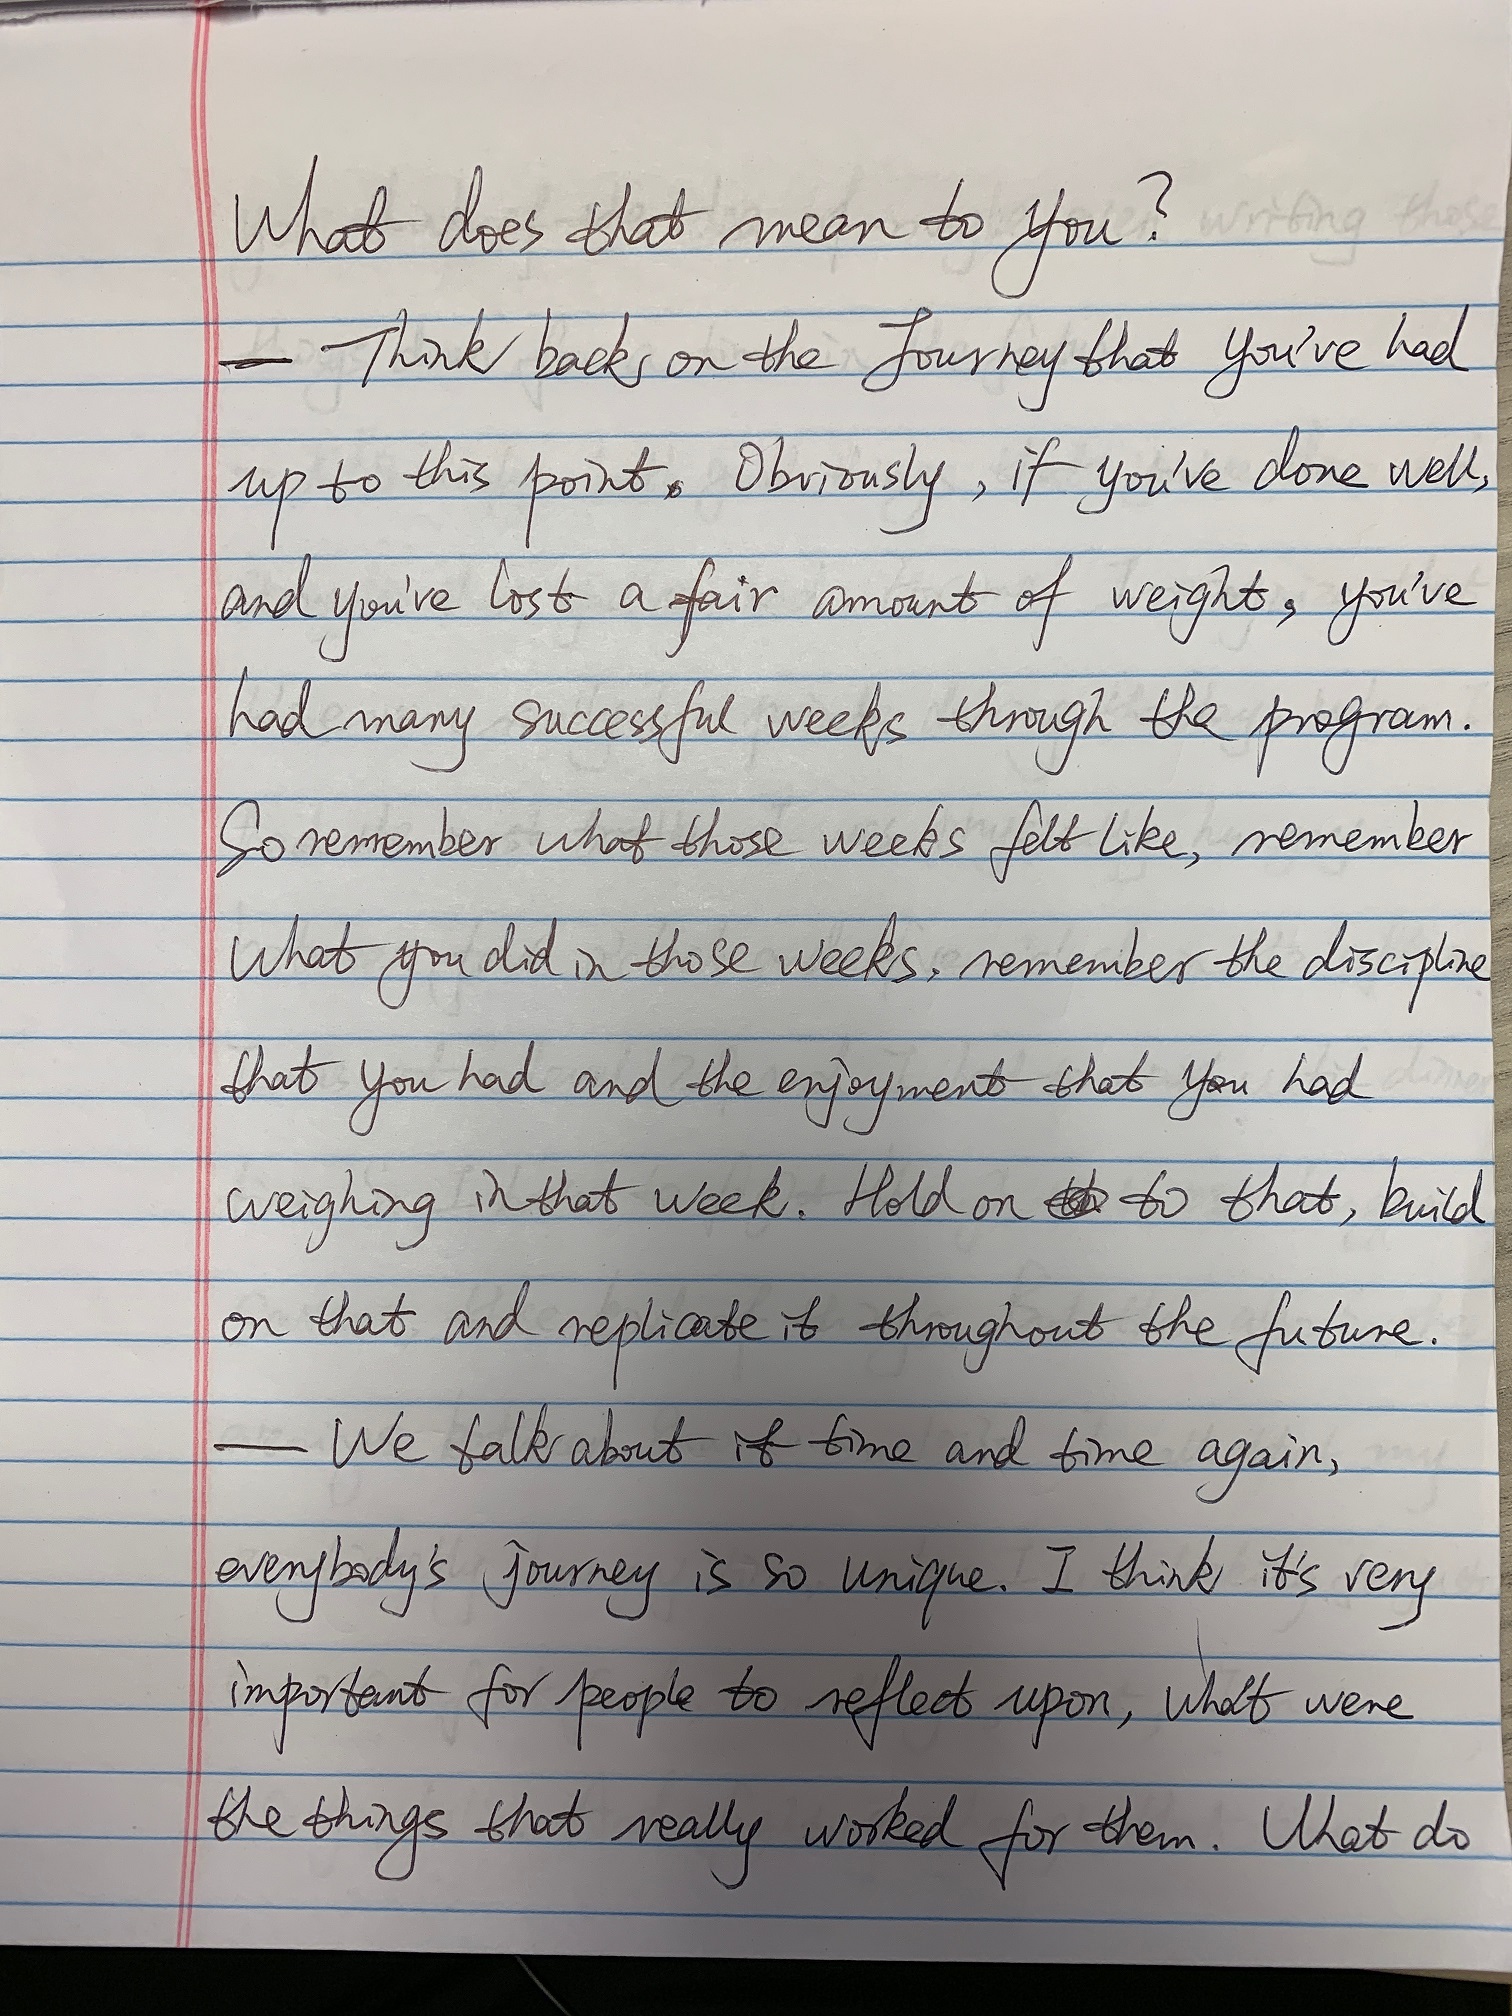 What does that mean to you?
— Think back on the Journey that you've had
up to this point. Obviously, if you've done well,
and you've lost a fair amount of weight, you've
had many successful weeks through the program.
So remember what those weeks felt like, remember
what you did in those weeks, remember the discipline
that you had and the enjoyment that you had
weighing in that week. Hold on to that, build
on that and replicate it throughout the future.
— We talk about it time and time again,
everybody's journey is so unique. I think it's very
important for people to reflect upon, what were
the things that really worked for them. What do